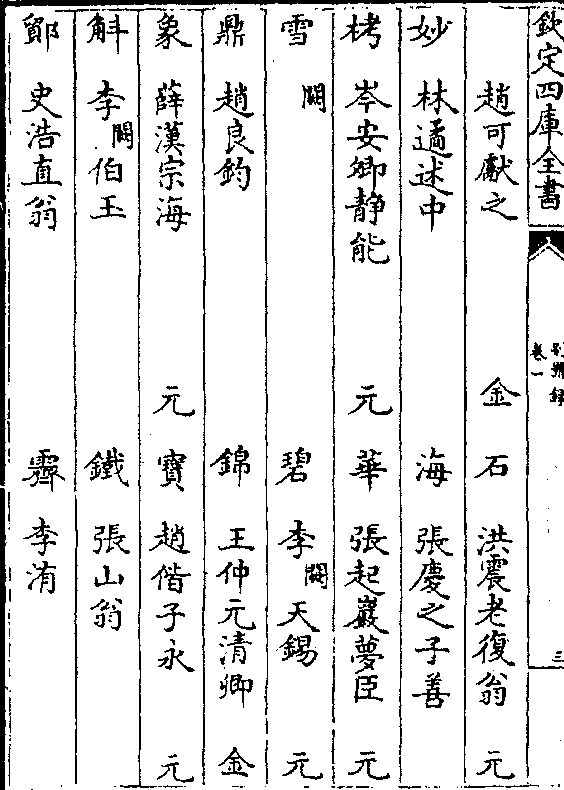 欽定四庫全書
别號錄
卷一
三
趙可獻之 金 石 洪震老復翁 元
妙 林遹述中 海 張慶之子善
栲 岑安卿静能 元 華 張起巖夢臣 元
雪 闕 碧 李闕天錫 元
鼎 趙良鈞 錦 王仲元清卿 金
象 薛漢宗海 元 寶 趙偕子永 元
斛 李闕伯玉 鐵 張山翁
鄮 史浩直翁 霽 李洧